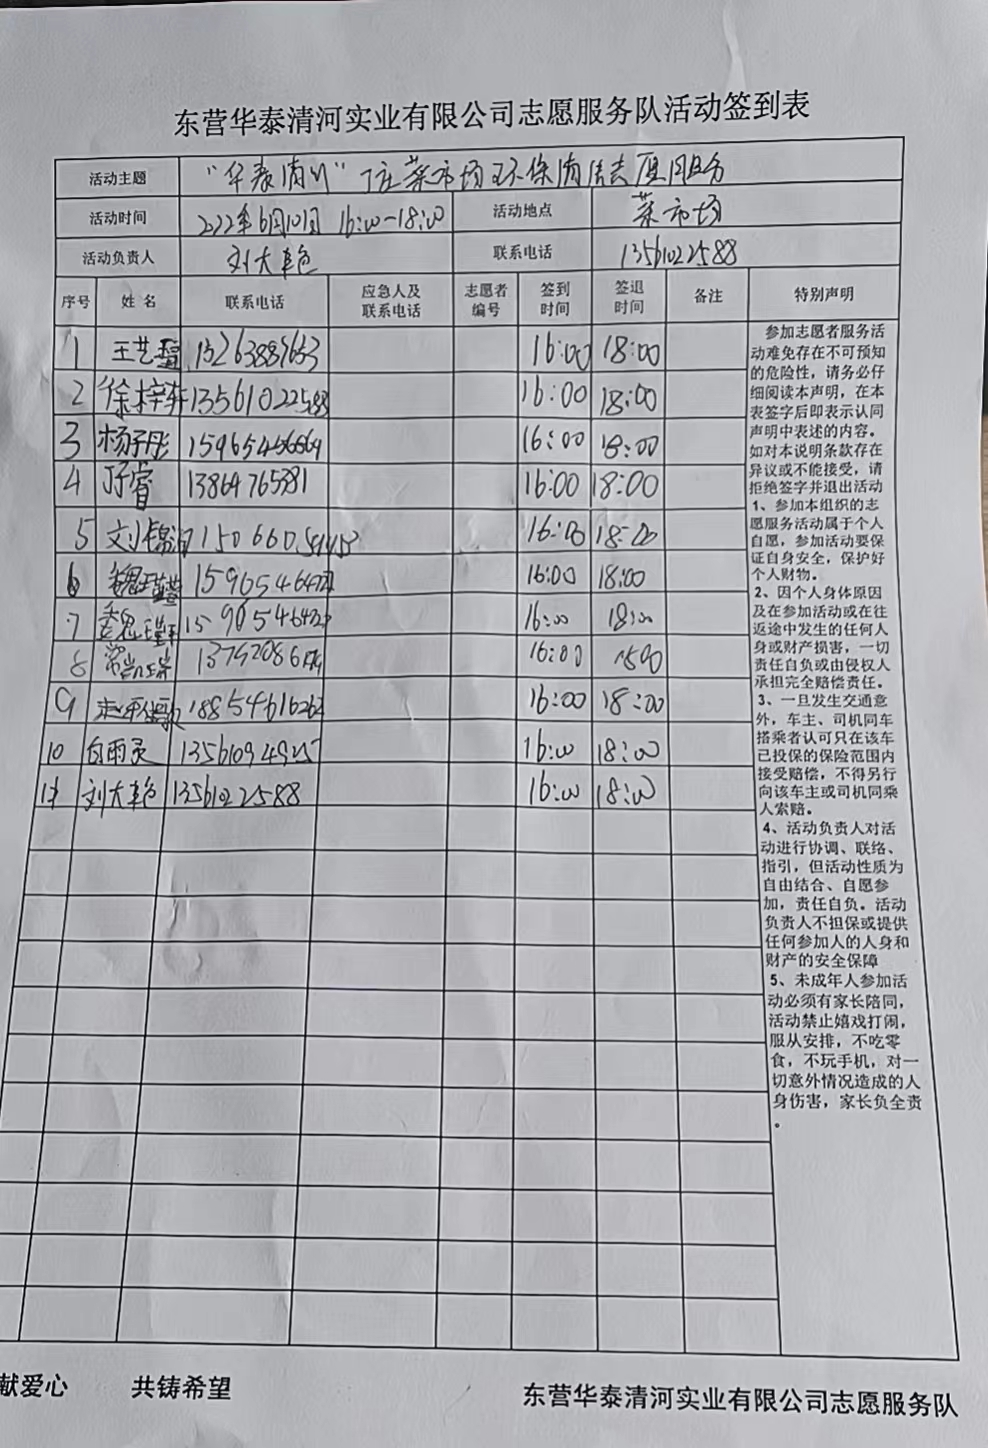 东营华泰清河实业有限公司志愿服务队活动签到表
活动主题 "华泰清河"丁庄菜市场环保清洁志愿服务
活动时间 2022年6月10日 16:00-18:00 活动地点 菜市场
活动负责人 刘大 联系电话 13561022588
序号 姓名 联系电话 应急人及联系电话 志愿者编号 签到时间 签退时间 备注 特别声明
1 王艺 16:00 18:00
2 徐梓轩 13561022588 16:00 18:00
3 杨子彤 16:00 18:00
4 睿 13864765381 16:00 18:00
5 刘锦 16:00 18:00
6 魏 16:00 18:00
7 魏 16:00 18:00
8 16:00
9 16:00 18:00
10 白雨灵 16:00 18:00
11 刘大 13561022588 16:00 18:00
参加志愿者服务活
动难免存在不可预知
的危险性，请务必仔
细阅读本声明，在本
表签字后即表示认同
声明中表述的内容。
如对本说明条款存在
异议或不能接受，请
拒绝签字并退出活动
1、参加本组织的志
愿服务活动属于个人
自愿，参加活动要保
证自身安全，保护好
个人财物。
2、因个人身体原因
及在参加活动或在往
返途中发生的任何人
身或财产损害，一切
责任自负或由侵权人
承担完全赔偿责任。
3、一旦发生交通意
外，车主、司机同车
搭乘者认可只在该车
已投保的保险范围内
接受赔偿，不得另行
向该车主或司机同乘
人索赔。
4、活动负责人对活
动进行协调、联络、
指引，但活动性质为
自由结合、自愿参
加，责任自负。活动
负责人不担保或提供
任何参加人的人身和
财产的安全保障
5、未成年人参加活
动必须有家长陪同，
活动禁止嬉戏打闹，
服从安排，不吃零
食，不玩手机，对一
切意外情况造成的人
身伤害，家长负全责
。
献爱心 共铸希望 东营华泰清河实业有限公司志愿服务队